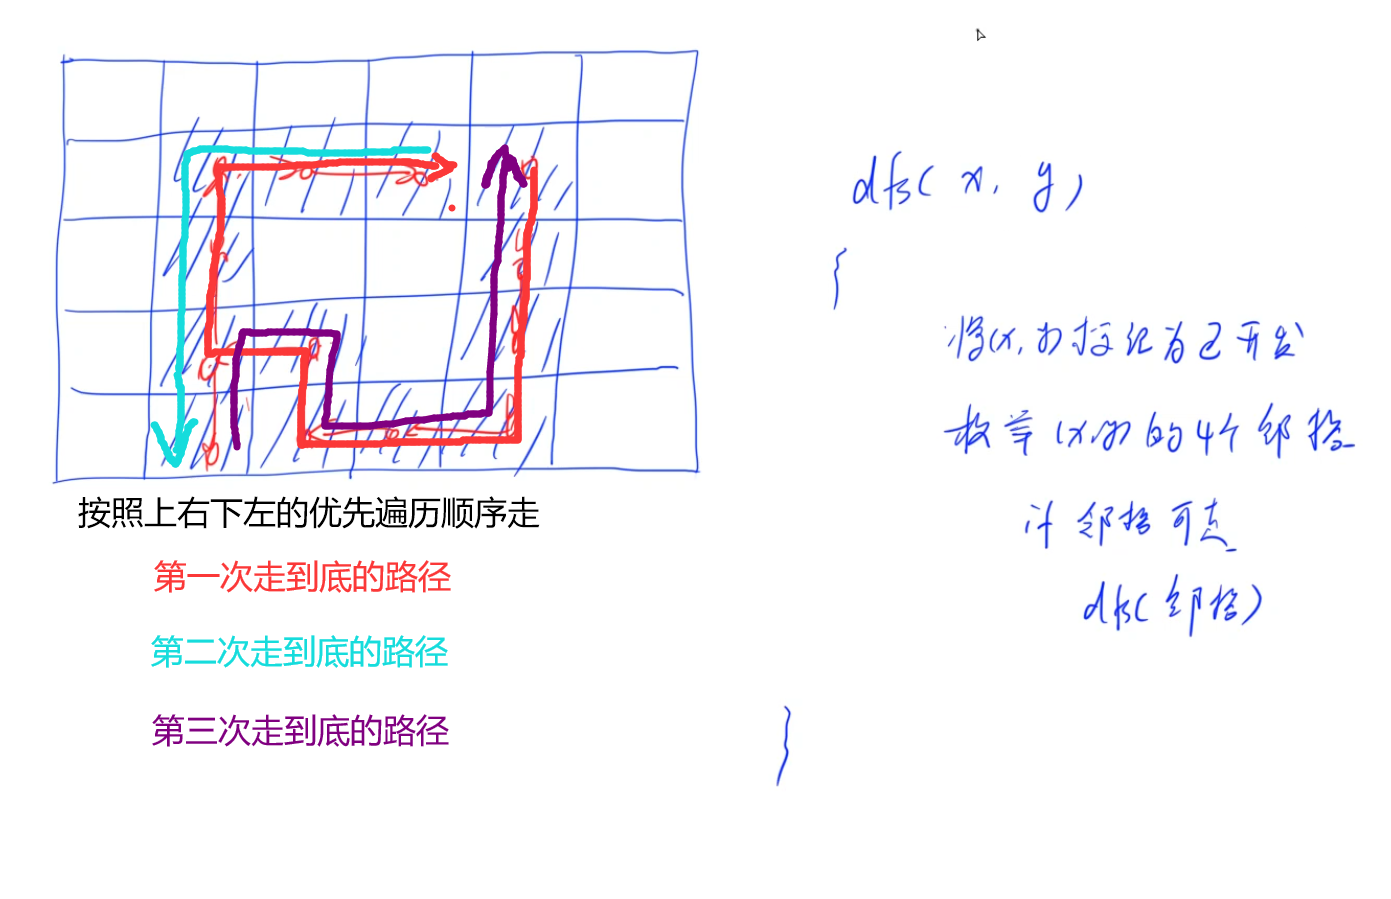 按照上右下左的优先遍历顺序走
第一次走到底的路径
第二次走到底的路径
第三次走到底的路径
dfs( x, y )
{
将(x, y)标记为已开发
枚举(x,y)的4个邻格
if 邻格可走
dfs(邻格)
}